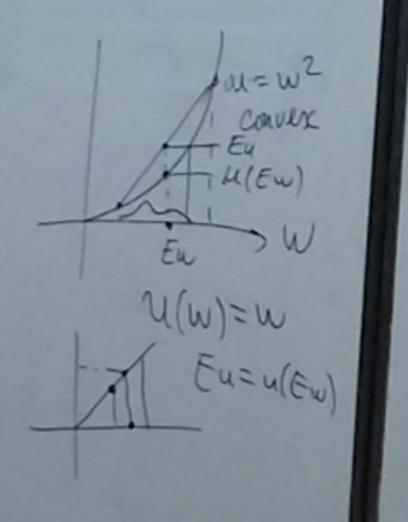 u=w²
convex
Eu
u(Ew)
W
Ew
U(w)=w
Eu=u(Ew)